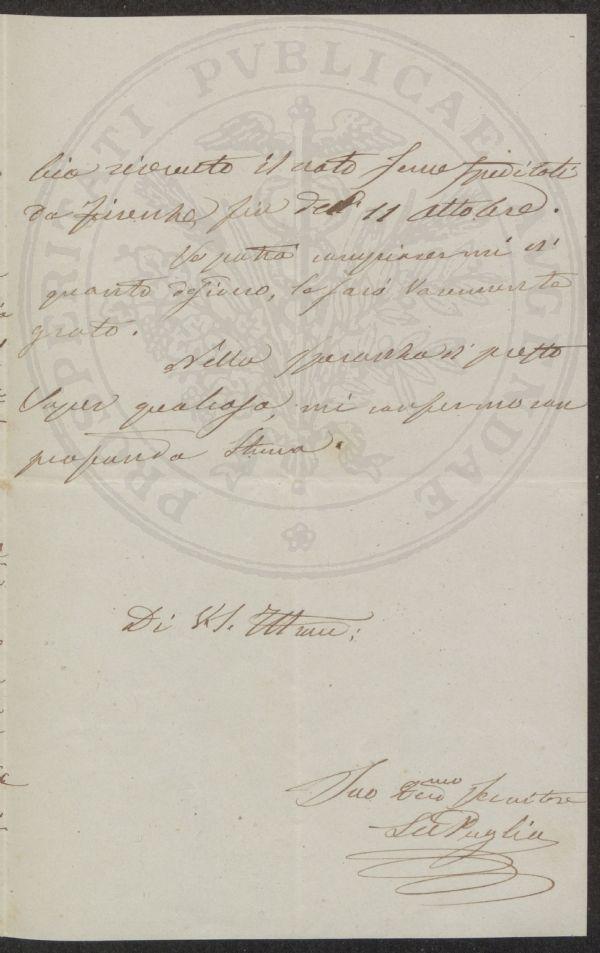 PROSPERITATI PVBLICAE AVGENDAE
bia ricevuto il noto seme speditoli
da Firenze, fin dell' 11 Ottobre.
Se potrà compiacermi di
quanto desidero, le sarò veramente
grato.
Nella speranza di presto
saper qualcosa, mi confermo con
profonda stima.
Di V.S. Illma:
Suo Devmo Servitore
Puglia